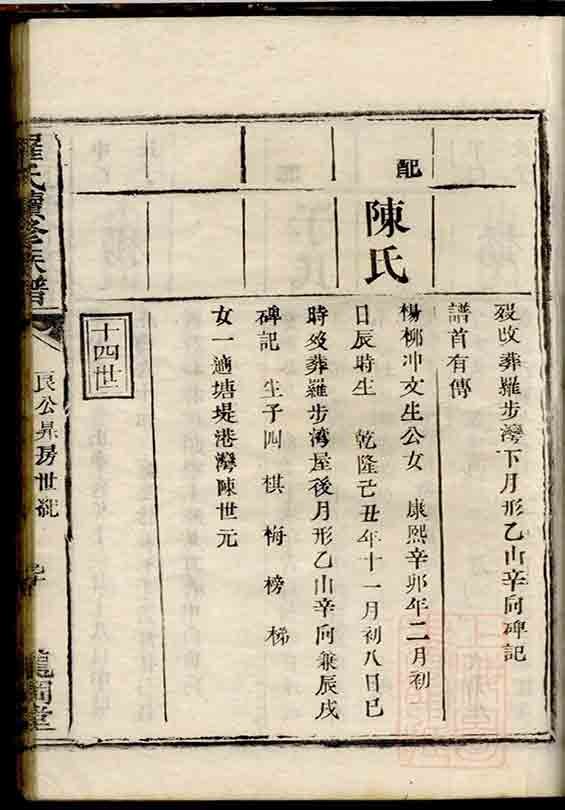 歿改葬羅步灣下月形乙山辛向碑記
譜首有傳
配
陳氏
楊柳冲文生公女 康熙辛卯年二月初
日辰時生 乾隆己丑年十一月初八日巳
時歿葬羅步灣屋後月形乙山辛向兼辰戌
碑記 生子四 棋 梅 榜 梯
女一適塘堤港灣陳世元
十四世
羅氏續修族譜
良公昇房世紀